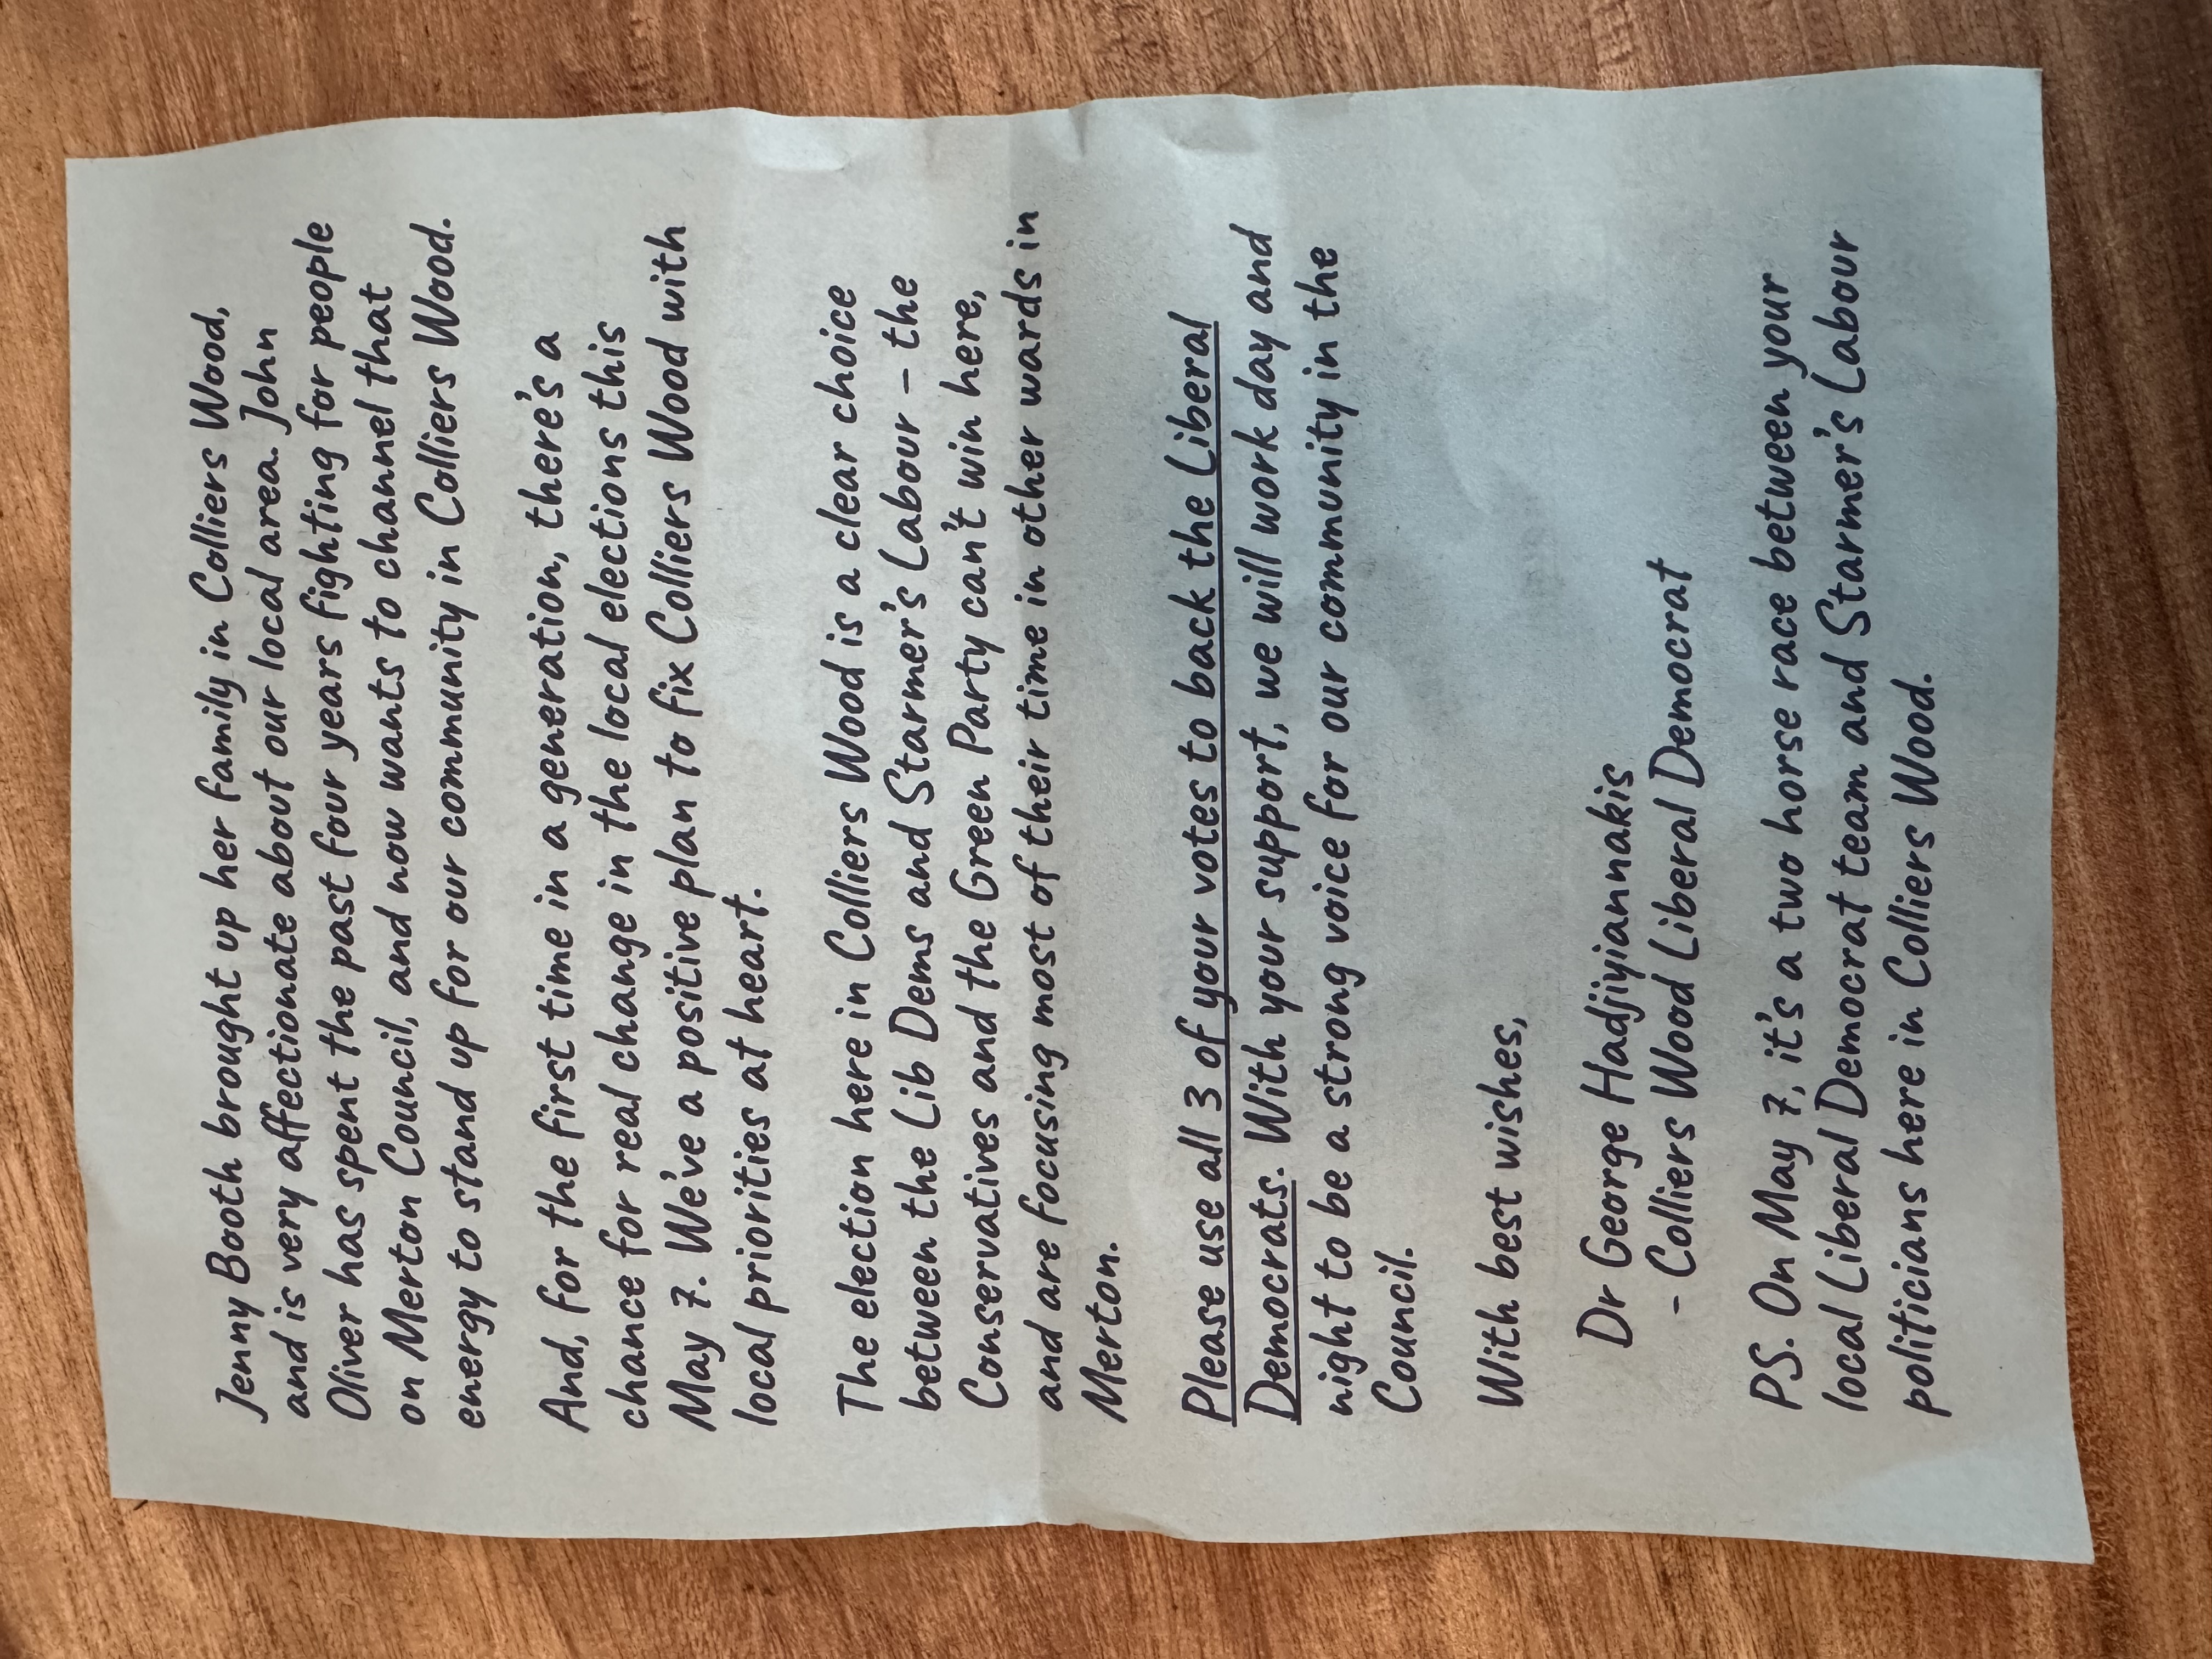 Jenny Booth brought up her family in Colliers Wood,
and is very affectionate about our local area. John
Oliver has spent the past four years fighting for people
on Merton Council, and now wants to channel that
energy to stand up for our community in Colliers Wood.
And, for the first time in a generation, there's a
chance for real change in the local elections this
May 7. We've a positive plan to fix Colliers Wood with
local priorities at heart.
The election here in Colliers Wood is a clear choice
between the Lib Dems and Starmer's Labour – the
Conservatives and the Green Party can't win here,
and are focusing most of their time in other wards in
Merton.
Please use all 3 of your votes to back the Liberal
Democrats. With your support, we will work day and
night to be a strong voice for our community in the
Council.
With best wishes,
Dr George Hadjiyiannakis
- Colliers Wood Liberal Democrat
PS. On May 7, it's a two horse race between your
local Liberal Democrat team and Starmer's Labour
politicians here in Colliers Wood.